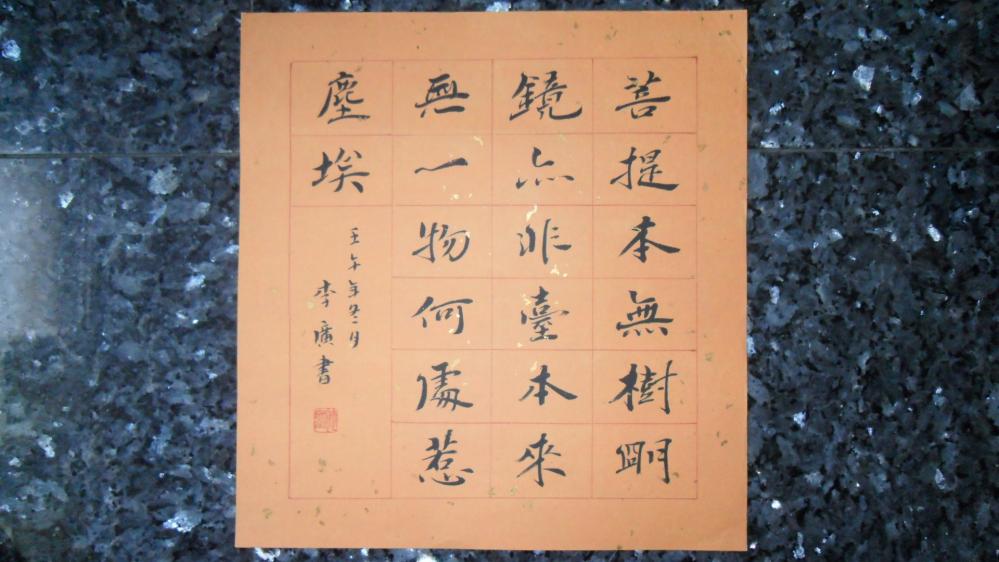 菩提本無樹明
鏡亦非臺本來
無一物何處惹
塵埃
壬午年冬月
李廣書